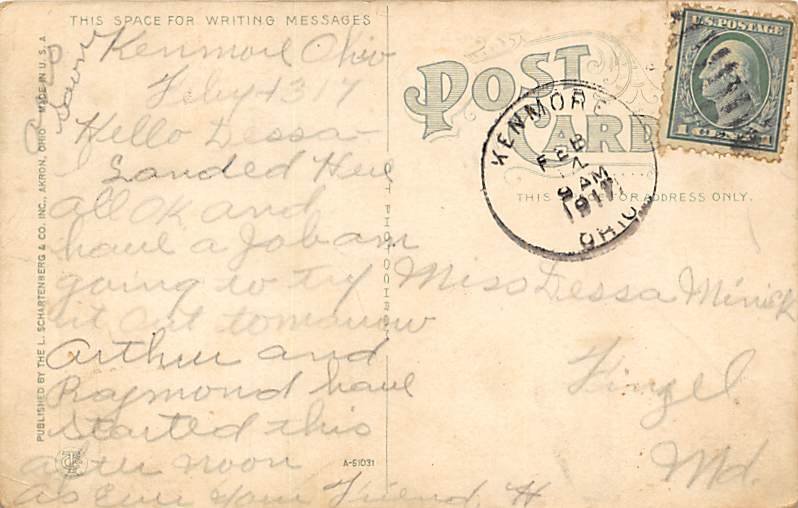 THIS SPACE FOR WRITING MESSAGES
Kenmore Ohio
Feby 13 17
Hello Dessa-
Landed Here
all OK and
have a Job am
going to try
it out tomarrow
Arthur and
Raymond have
started this
after noon
as Ever your Friend. H
PUBLISHED BY THE L. SCHARTENBERG & CO. INC., AKRON, OHIO MADE IN U.S.A
A-51031
POST CARD
THIS FOR ADDRESS ONLY.
KENMORE
FEB
9 AM
1917
OHIO
U.S. POSTAGE
1 CENT 1
Miss Dessa Minick
Finzel
Md.